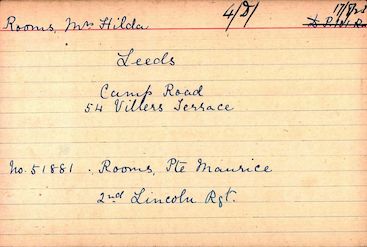 Rooms, Mrs Hilda 4/D/
Leeds
Camp Road
54 Villers Terrace
No. 51881. Rooms, Pte Maurice
2nd Lincoln Rgt.